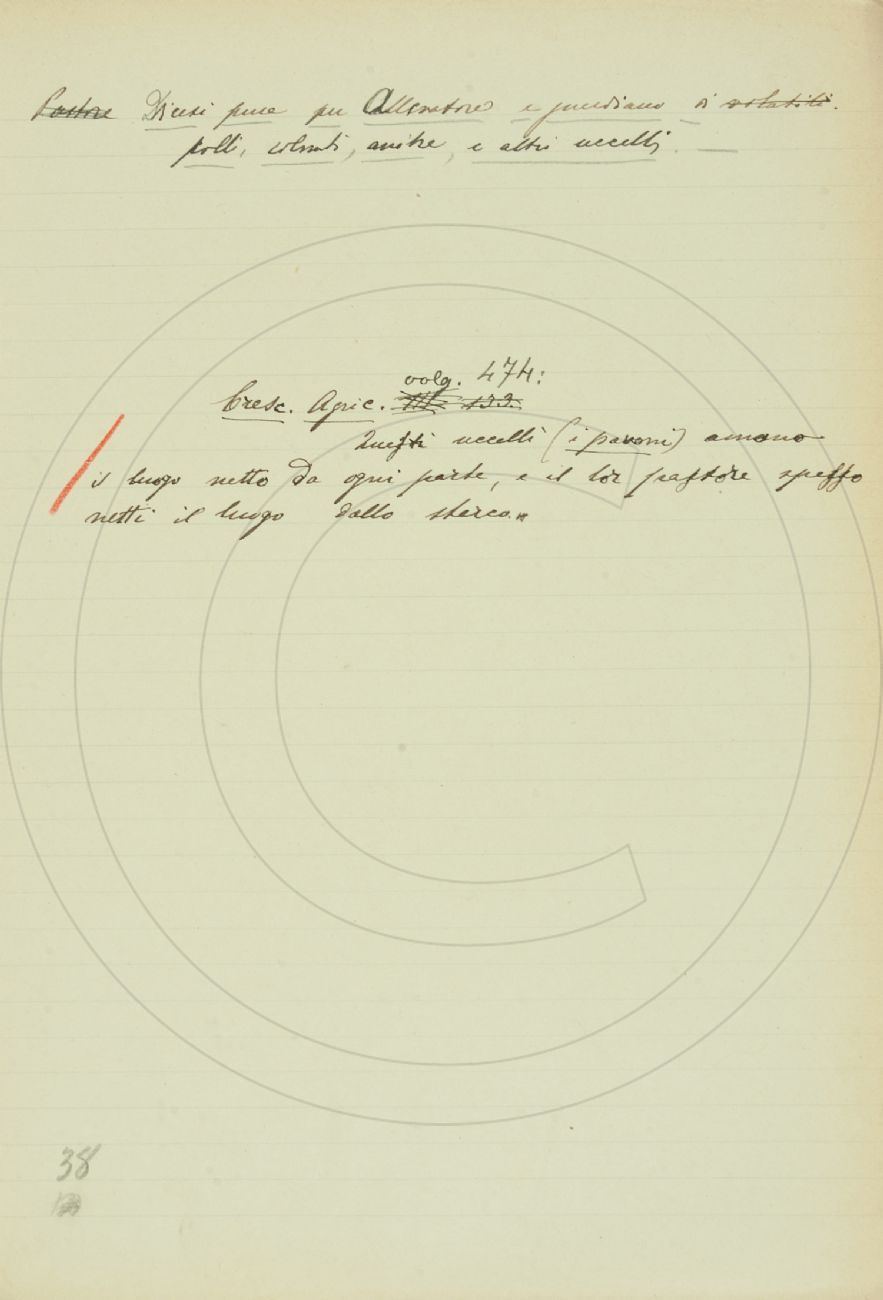 Pastore Dicesi pure per Allevatore e guardiano di volatili.
polli, colombi, anitre, e altri uccelli. —
volg. 474:
Cresc. Agric. III 133.
Questi uccelli (i pavoni) amano
il luogo netto da ogni parte, e il lor pastore spesso
netti il luogo dallo sterco.
38